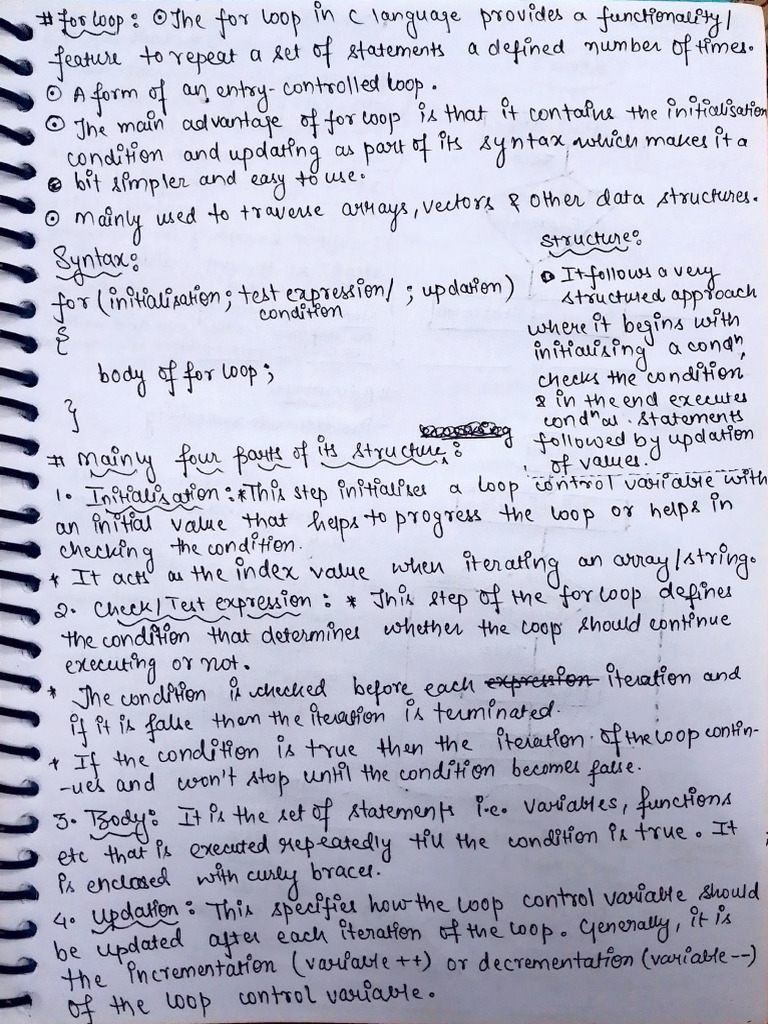 # for loop: ⊙ The for loop in C language provides a functionality/
feature to repeat a set of statements a defined number of times.
⊙ A form of an entry-controlled loop.
⊙ The main advantage of for loop is that it contains the initialisation
condition and updating as part of its syntax which makes it a
bit simpler and easy to use.
⊙ mainly used to traverse arrays, vectors & other data structures.
Syntax:
for (initialisation; test expression/ ; updation)
condition
{
body of for loop;
}
structure:
It follows a very
structured approach
where it begins with
initialising a condⁿ,
checks the condition
& in the end executes
condⁿal statements
followed by updation
of values.
# Mainly four parts of its structure:
1. Initialisation: * This step initialises a loop control variable with
an initial value that helps to progress the loop or helps in
checking the condition.
* It acts as the index value when iterating an array/string.
2. Check/Test expression: * This step of the for loop defines
the condition that determines whether the loop should continue
executing or not.
* The condition is checked before each expression iteration and
if it is false then the iteration is terminated.
* If the condition is true then the iteration of the loop contin-
-ues and won't stop until the condition becomes false.
3. Body: It is the set of statements i.e. variables, functions
etc that is executed repeatedly till the condition is true. It
is enclosed with curly braces.
4. Updation: This specifies how the loop control variable should
be updated after each iteration of the loop. Generally, it is
the incrementation (variable++) or decrementation (variable--)
of the loop control variable.